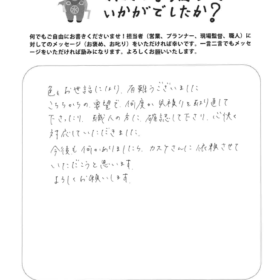 いかがでしたか?
何でもご自由にお書きくださいませ！担当者（営業、プランナー、現場監督、職人）に
対してのメッセージ（お褒め、お叱り）をいただければ幸いです。一言二言でもメッセ
ージをいただければ励みになります。よろしくお願いいたします。
色々お世話になり、有難うございました
こちらからの要望で、何度か見積りを取り直して
下さったり、職人の方に確認して下さり、心快く
対応していただきました。
今後も何かありましたら、カスケさんに依頼させて
いただこうと思います。
よろしくお願いします。